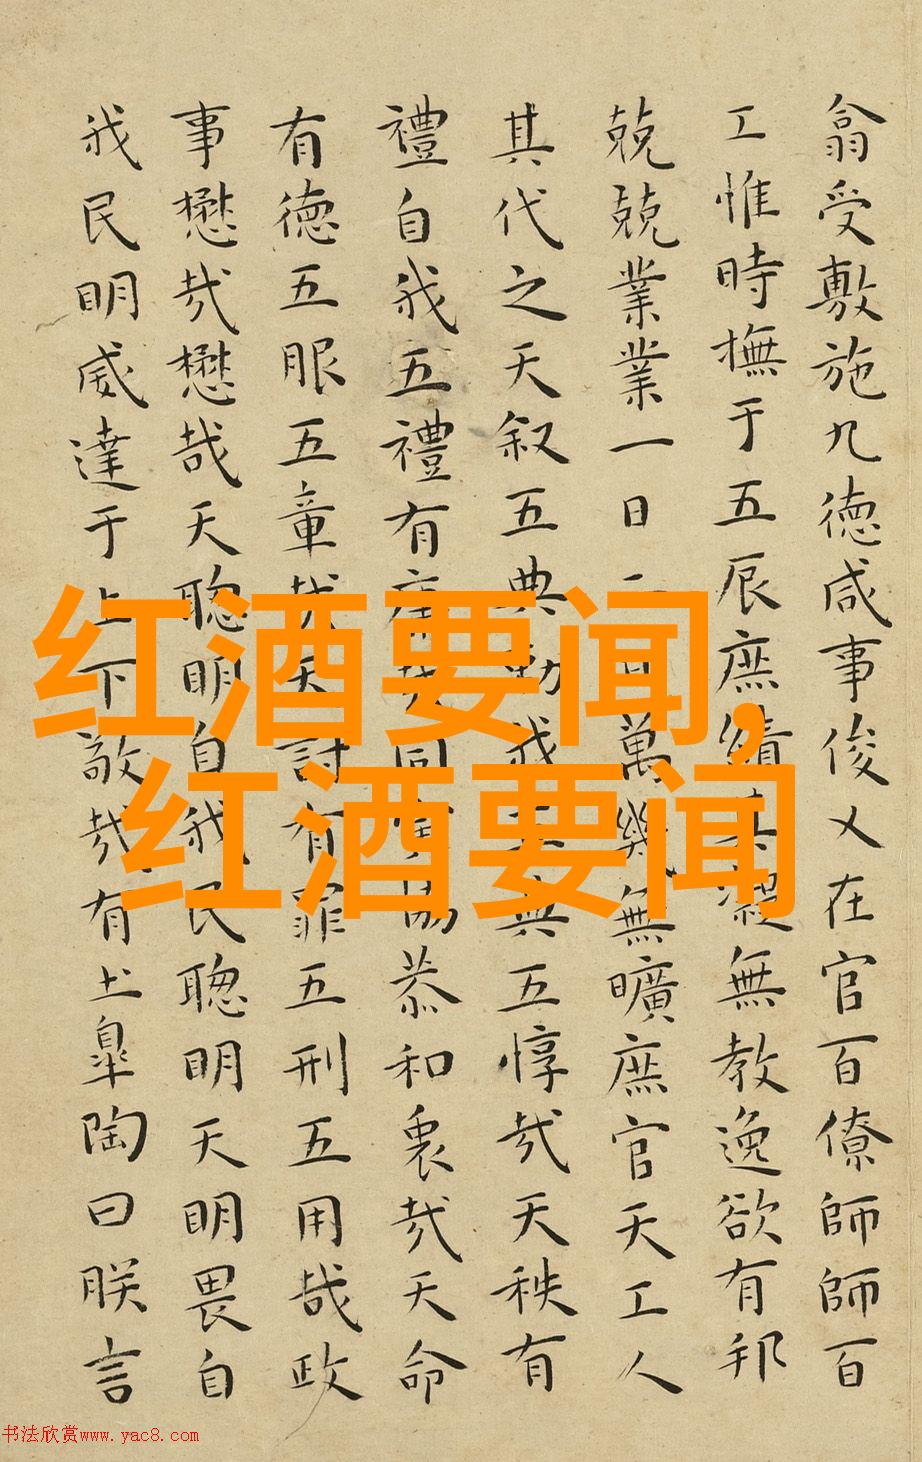 翕受敷施九德咸事俊乂在官百僚師師百
工惟時撫于五辰庶績其凝無教逸欲有邦
兢兢業業一日二日萬幾無曠庶官天工人
其代之天叙五典勑我五典五惇哉天秩有
禮自我五禮有庸哉同寅協恭和衷哉天命
有德五服五章哉天討有罪五刑五用哉政
事懋哉懋哉天聰明自我民聰明天明畏自
我民明威達于上下敬哉有土皐陶曰朕言
红酒要闻,
红酒要闻
书法欣赏www.yac8.com